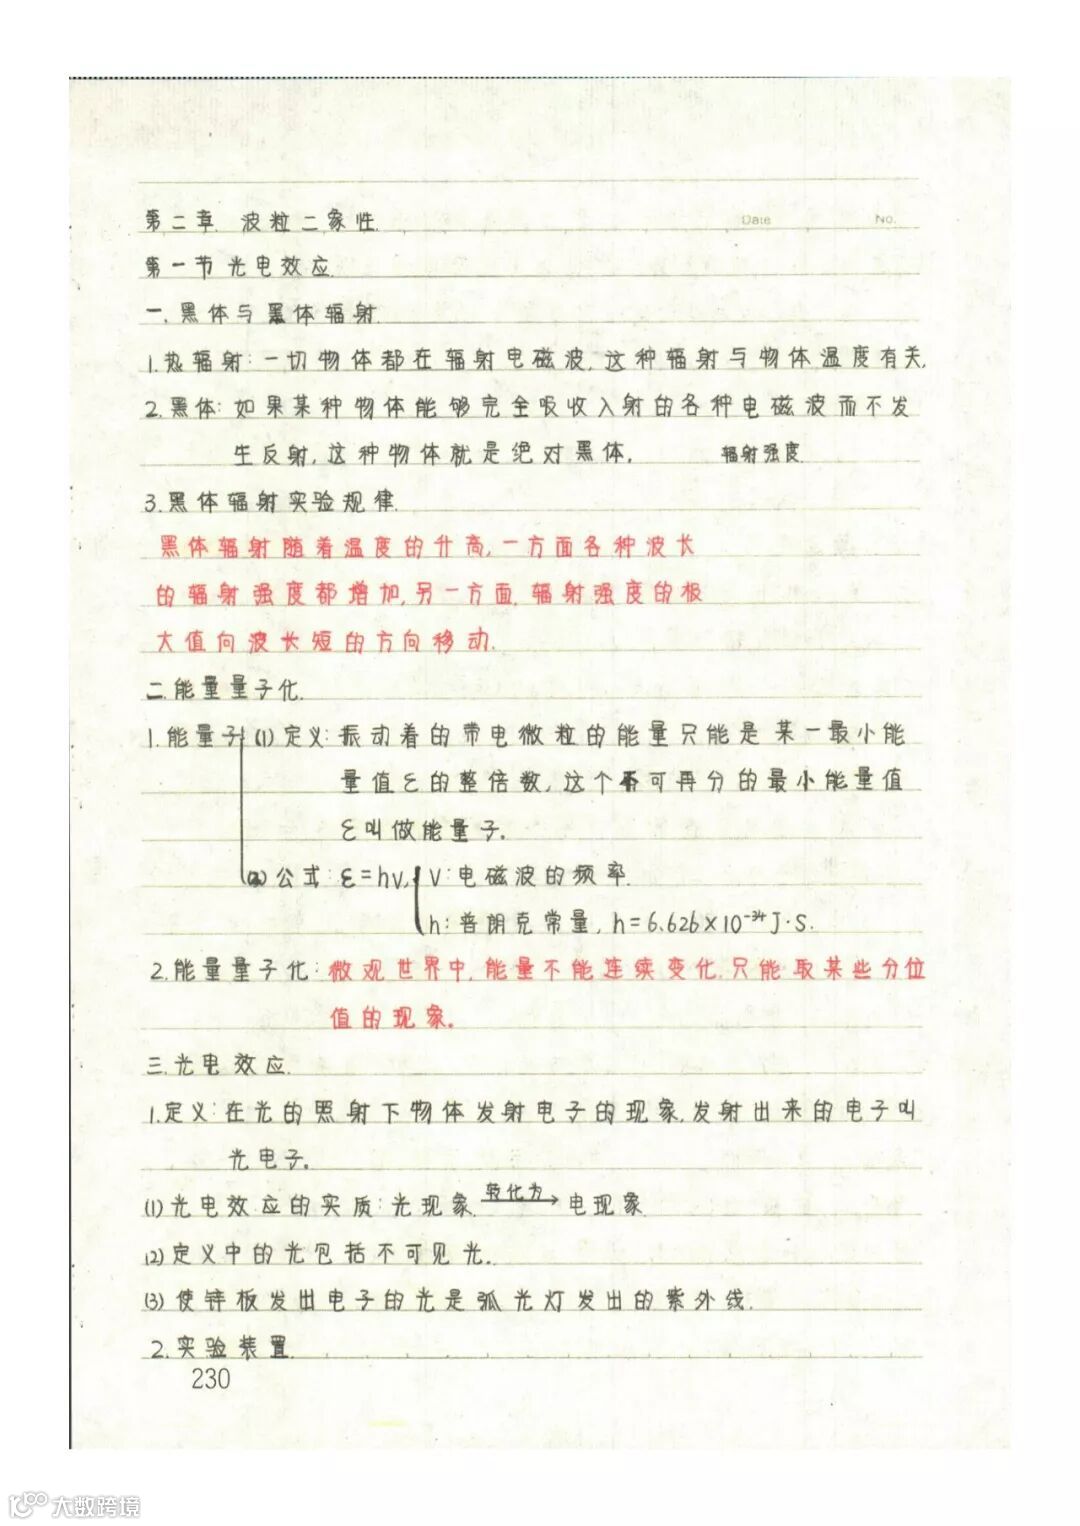 Date No.
第二章 波粒二象性
第一节光电效应
一.黑体与黑体辐射
1.热辐射:一切物体都在辐射电磁波,这种辐射与物体温度有关.
2.黑体:如果某种物体能够完全吸收入射的各种电磁波而不发
生反射,这种物体就是绝对黑体. 辐射强度
3.黑体辐射实验规律.
黑体辐射随着温度的升高,一方面各种波长
的辐射强度都增加,另一方面,辐射强度的极
大值向波长短的方向移动.
二.能量量子化.
1.能量子 (1)定义:振动着的带电微粒的能量只能是某一最小能
量值ε的整倍数,这个不可再分的最小能量值
ε叫做能量子.
(2)公式:ε=hν, ν:电磁波的频率.
h:普朗克常量,h=6.626×10⁻³⁴J·S.
2.能量量子化:微观世界中,能量不能连续变化.只能取某些分位
值的现象.
三.光电效应.
1.定义:在光的照射下物体发射电子的现象.发射出来的电子叫
光电子.
(1)光电效应的实质:光现象 转化为→ 电现象
(2)定义中的光包括不可见光.
(3)使锌板发出电子的光是弧光灯发出的紫外线.
2.实验装置
230
大数跨境